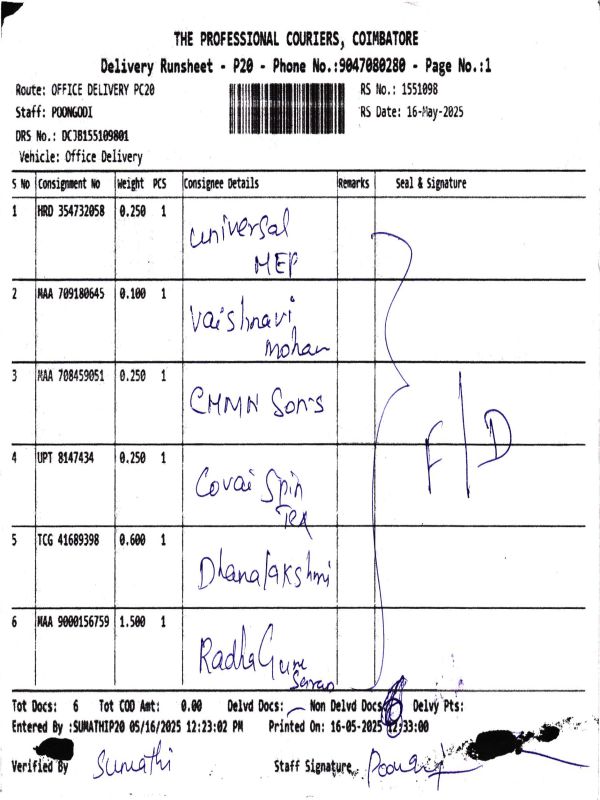 THE PROFESSIONAL COURIERS, COIMBATORE
Delivery Runsheet - P20 - Phone No.:9047080280 - Page No.:1
Route: OFFICE DELIVERY PC20 RS No.: 1551098
Staff: POONGODI RS Date: 16-May-2025
DRS No.: DCJB155109801
Vehicle: Office Delivery
S No Consignment No Weight PCS Consignee Details Remarks Seal & Signature
1 HRD 354732058 0.250 1 Universal
MEP
2 MAA 709180645 0.100 1 Vaishnavi
Mohan
3 MAA 708459051 0.250 1 CHMN Son's
F/D
4 UPT 8147434 0.250 1 Covai Spin
Tex
5 TCG 41689398 0.600 1 Dhanalakshmi
6 MAA 9000156759 1.500 1 Radha
Tot Docs: 6 Tot COD Amt: 0.00 Delvd Docs: - Non Delvd Docs: 6 Delvy Pts:
Entered By :SUMATHIP20 05/16/2025 12:23:02 PM Printed On: 16-05-2025 12:33:00
Verified By Sumathi Staff Signature